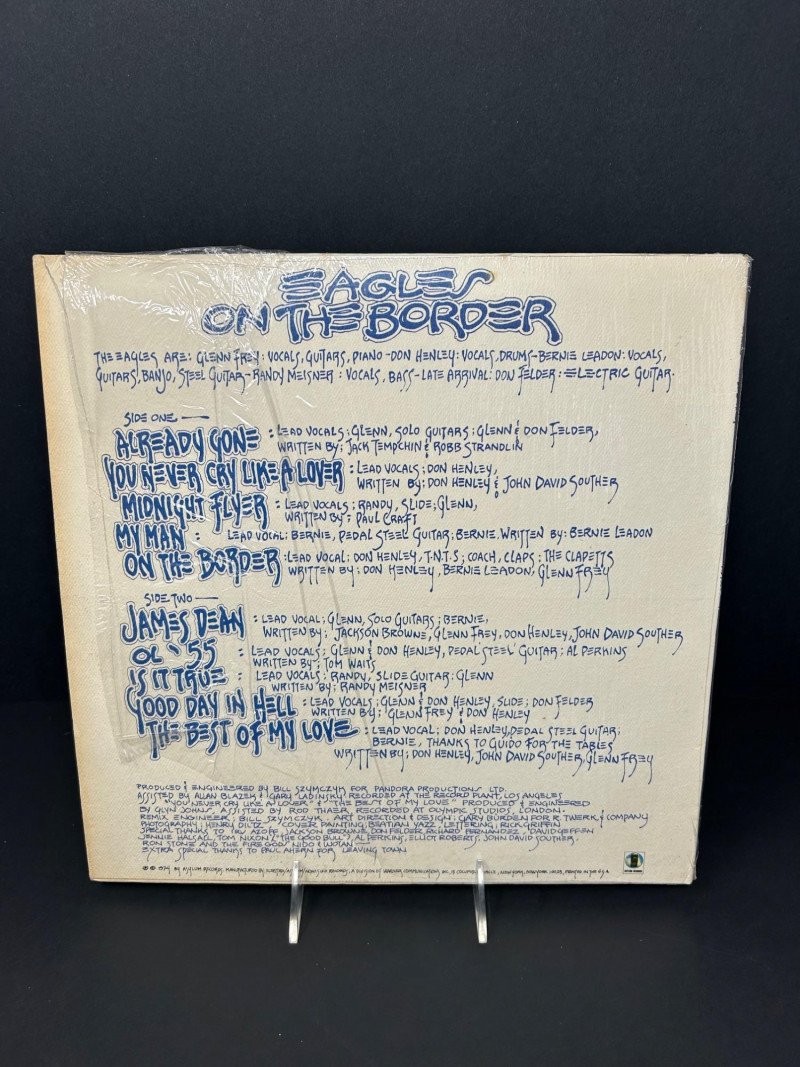 EAGLES
ON THE BORDER
THE EAGLES ARE: GLENN FREY: VOCALS, GUITARS, PIANO - DON HENLEY: VOCALS, DRUMS - BERNIE LEADON: VOCALS,
GUITARS, BANJO, STEEL GUITAR - RANDY MEISNER: VOCALS, BASS - LATE ARRIVAL: DON FELDER: ELECTRIC GUITAR.
SIDE ONE —
ALREADY GONE : LEAD VOCALS; GLENN, SOLO GUITARS; GLENN & DON FELDER,
WRITTEN BY; JACK TEMPCHIN & ROBB STRANDLIN
YOU NEVER CRY LIKE A LOVER : LEAD VOCALS; DON HENLEY,
WRITTEN BY: DON HENLEY & JOHN DAVID SOUTHER
MIDNIGHT FLYER : LEAD VOCALS; RANDY, SLIDE; GLENN,
WRITTEN BY: PAUL CRAFT
MY MAN : LEAD VOCAL: BERNIE, PEDAL STEEL GUITAR; BERNIE. WRITTEN BY: BERNIE LEADON
ON THE BORDER : LEAD VOCAL: DON HENLEY, T.N.T.S; COACH, CLAPS; THE CLAPETTS
WRITTEN BY; DON HENLEY, BERNIE LEADON, GLENN FREY
SIDE TWO —
JAMES DEAN : LEAD VOCAL; GLENN, SOLO GUITARS; BERNIE,
WRITTEN BY; JACKSON BROWNE, GLENN FREY, DON HENLEY, JOHN DAVID SOUTHER
OL '55 : LEAD VOCALS; GLENN & DON HENLEY, PEDAL STEEL GUITAR; AL PERKINS
WRITTEN BY; TOM WAITS
IS IT TRUE : LEAD VOCALS; RANDY, SLIDE GUITAR; GLENN
WRITTEN BY; RANDY MEISNER
GOOD DAY IN HELL : LEAD VOCALS; GLENN & DON HENLEY, SLIDE; DON FELDER
WRITTEN BY; GLENN FREY & DON HENLEY
THE BEST OF MY LOVE : LEAD VOCAL; DON HENLEY, PEDAL STEEL GUITAR;
BERNIE, THANKS TO GUIDO FOR THE TABLES
WRITTEN BY; DON HENLEY, JOHN DAVID SOUTHER, GLENN FREY
PRODUCED & ENGINEERED BY BILL SZYMCZYK FOR PANDORA PRODUCTIONS LTD.
ASSISTED BY ALLAN BLAZEK & GARY LADINSKY RECORDED AT THE RECORD PLANT, LOS ANGELES
"YOU NEVER CRY LIKE A LOVER" & "THE BEST OF MY LOVE" PRODUCED & ENGINEERED
BY GLYN JOHNS, ASSISTED BY ROD THAER, RECORDED AT OLYMPIC STUDIOS, LONDON.
REMIX ENGINEER; BILL SZYMCZYK. ART DIRECTION & DESIGN; GARY BURDEN FOR R. TWERK & COMPANY
PHOTOGRAPHY; HENRY DILTZ COVER PAINTING; BEATIAN YAZZ, LETTERING; RICK GRIFFIN
SPECIAL THANKS TO JACKSON BROWNE, DON FELDER, RICHARD FERNANDEZ, DAVID GEFFEN
JENNIE HALCAL, TOM NIXON ("THE GOOD BULL"), AL PERKINS, ELLIOT ROBERTS, JOHN DAVID SOUTHER,
RON STONE AND THE FIRE GODS NIDO & WOTAN —
EXTRA SPECIAL THANKS TO PAUL AHERN FOR LEAVING TOWN